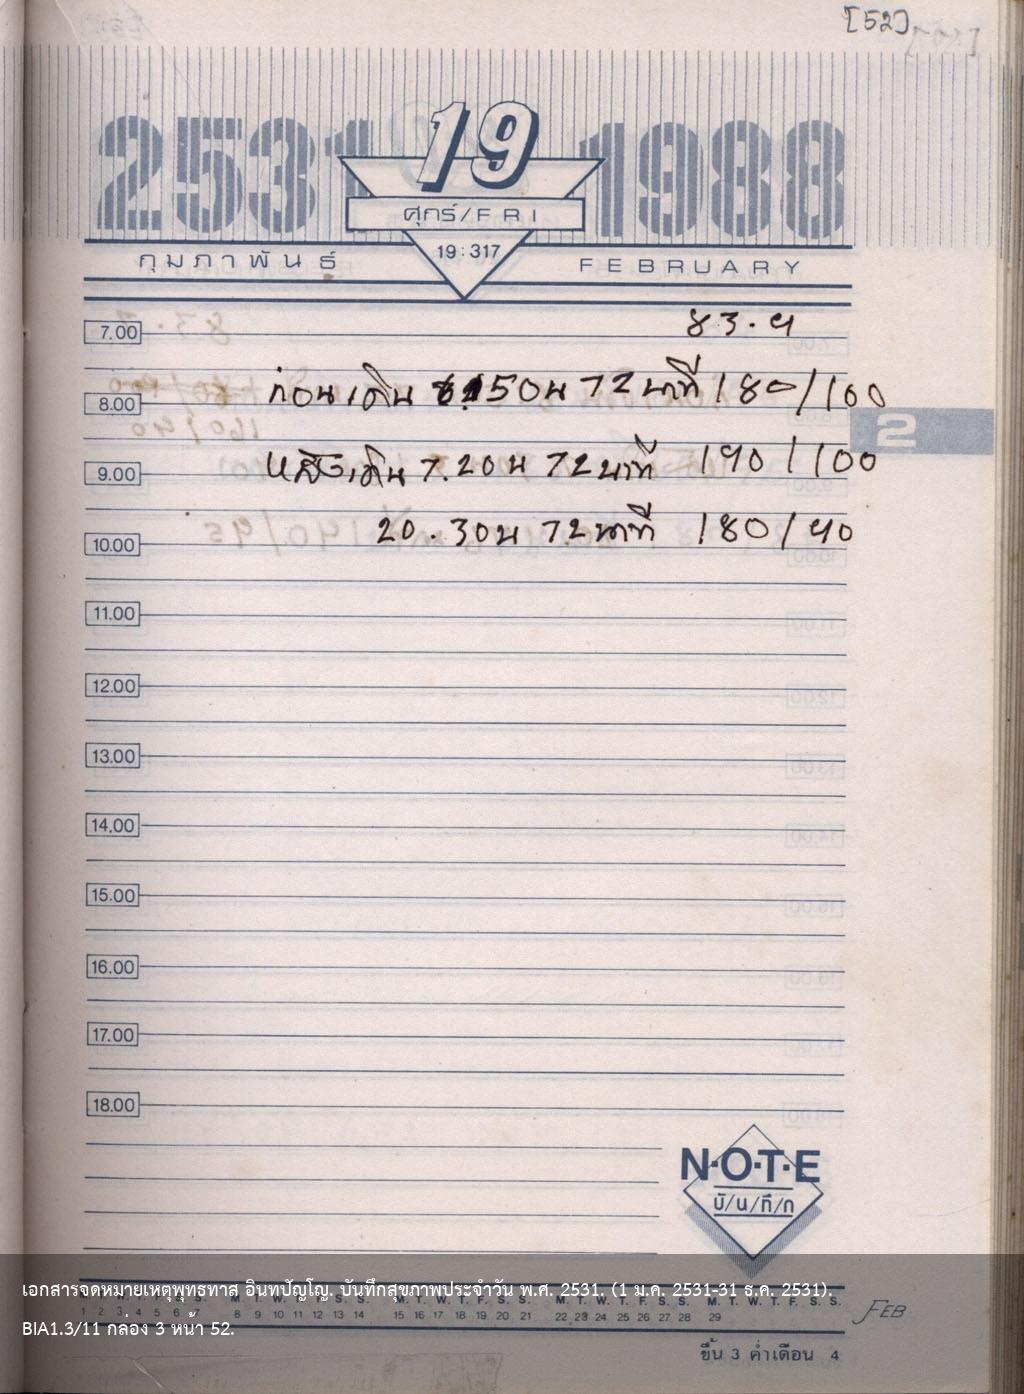 [52]
2531 19 1988
ศุกร์/FRI
19:317
กุมภาพันธ์ FEBRUARY
7.00 83.9
ก่อนเดิน 50น 72 นาที 180/100
8.00
2
หลังเดิน 7.20น 72 นาที 190/100
9.00
20.30น 72 นาที 180/90
10.00
11.00
12.00
13.00
14.00
15.00
16.00
17.00
18.00
N·O·T·E
บั/น/ทึ/ก
เอกสารจดหมายเหตุพุทธทาส อินทปัญโญ. บันทึกสุขภาพประจำวัน พ.ศ. 2531. (1 ม.ค. 2531-31 ธ.ค. 2531).
M. T. W. T. F. S. S. M. T. W. T. F. S. S. M. T. W. T. F. S. S. M. T. W. T. F. S. S.
1 2 3 4 5 6 7 8 9 10 11 12 13 14 15 16 17 18 19 20 21 22 23 24 25 26 27 28 29
FEB
BIA1.3/11 กล่อง 3 หน้า 52.
ขึ้น 3 ค่ำเดือน 4